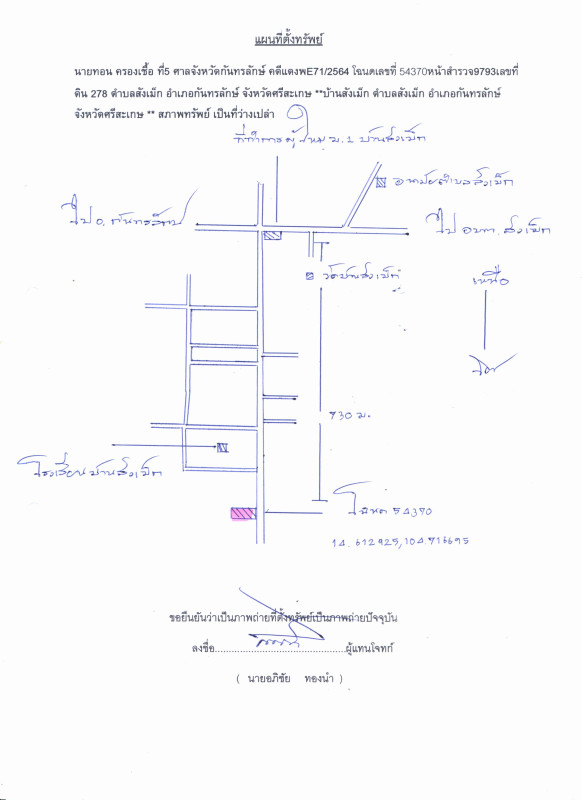 แผนที่ตั้งทรัพย์
นายทอน ครองเชื้อ ที่5 ศาลจังหวัดกันทรลักษ์ คดีแดงพE71/2564 โฉนดเลขที่ 54370หน้าสำรวจ9793เลขที่
ดิน 278 ตำบลสังเม็ก อำเภอกันทรลักษ์ จังหวัดศรีสะเกษ **บ้านสังเม็ก ตำบลสังเม็ก อำเภอกันทรลักษ์
จังหวัดศรีสะเกษ ** สภาพทรัพย์ เป็นที่ว่างเปล่า
ที่ทำการผู้ใหญ่ ม.1 บ้านสังเม็ก
อนามัยตำบลสังเม็ก
ไป อ.กันทรลักษ์
ไป อบต.สังเม็ก
วัดบ้านสังเม็ก
เหนือ
ใต้
730 ม.
โรงเรียนบ้านสังเม็ก
โฉนด 54370
14.612925,104.716695
ขอยืนยันว่าเป็นภาพถ่ายที่ตั้งทรัพย์เป็นภาพถ่ายปัจจุบัน
ลงชื่อ............................................ผู้แทนโจทก์
( นายอภิชัย ทองนำ )